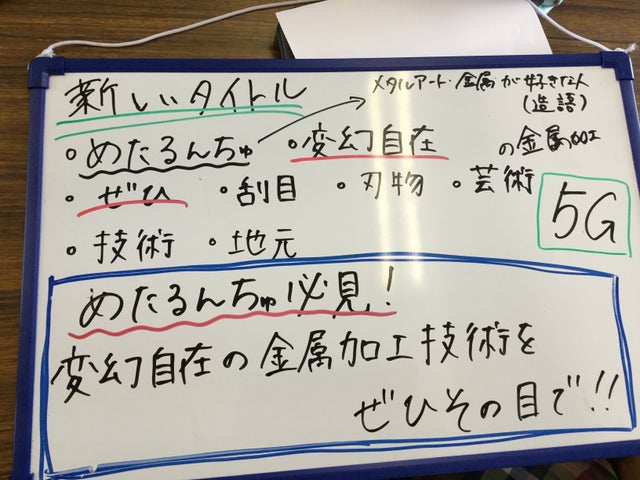 新しいタイトル
メタルアート・金属が好きな人
(造語)
・めたるんちゅ ・変幻自在 の金属加工
・ぜひ ・刮目 ・刃物 ・芸術
5G
・技術 ・地元
めたるんちゅ必見!
変幻自在の金属加工技術を
ぜひその目で!!